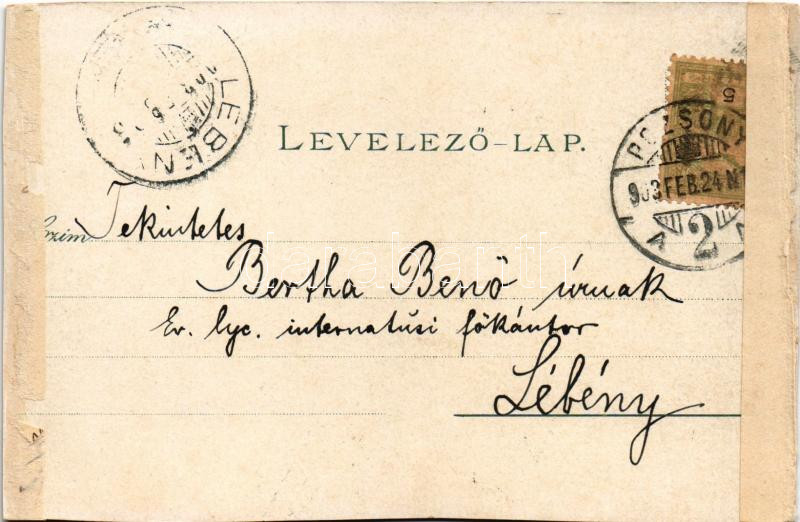 LEBENY
LEVELEZŐ-LAP.
5
POZSONY
903 FEB. 24 N
2
Tekintetes
Bertha Benő úrnak
Ev. lyc. internatusi főkántor
Lébény